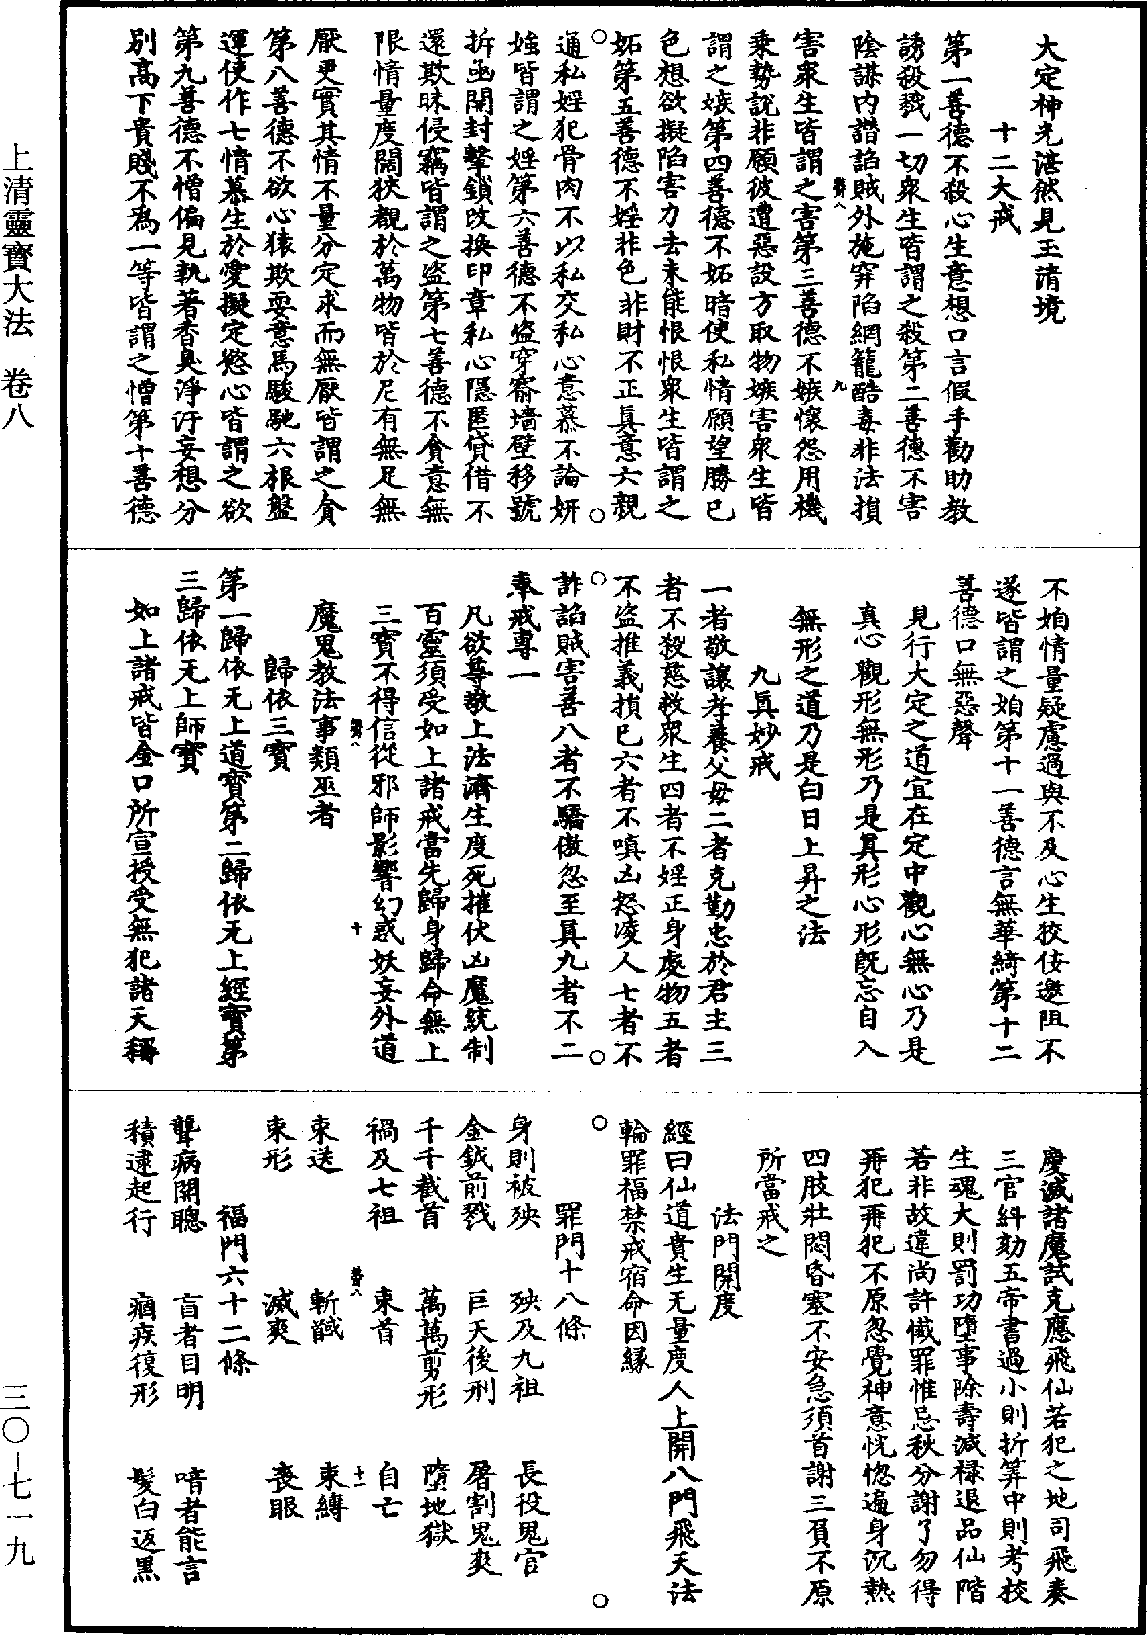 上清靈寶大法 卷八
三〇-七一九
大定神光湛然見玉清境
十二大戒
第一善德不殺心生意想口言假手勸助教
誘殺戮一切衆生皆謂之殺第二善德不害
陰謀內譖諂賊外施穽陷網籠酷毒非法損
害衆生皆謂之害第三善德不嫉懷怨用機
乘勢說非願彼遭惡設方取物嫉害衆生皆
謂之嫉第四善德不妬暗使私情願望勝己
色想欲擬陷害力去未能恨恨衆生皆謂之
妬第五善德不婬非色非財不正真意六親
通私婬犯骨肉不以私交私心意慕不論妍
媸皆謂之婬第六善德不盜穿窬墻壁移號
拆函開封擊鎖改換印章私心隱匿貸借不
還欺昧侵竊皆謂之盜第七善德不貪意無
限情量度闊狹觀於萬物皆於尼有無足無
厭更實其情不量分定求而無厭皆謂之貪
第八善德不欲心猿欺耍意馬駿馳六根盤
運使作七情慕生於愛擬定慾心皆謂之欲
第九善德不憎偏見執著香臭淨汙妄想分
別高下貴賤不爲一等皆謂之憎第十善德
不媢情量疑慮過與不及心生狡侫邀阻不
遂皆謂之媢第十一善德言無華綺第十二
善德口無惡聲
見行大定之道宜在定中觀心無心乃是
真心觀形無形乃是真形心形既忘自入
無形之道乃是白日上昇之法
九真妙戒
一者敬讓孝養父母二者克勤忠於君主三
者不殺慈救衆生四者不婬正身處物五者
不盜推義損己六者不嗔凶怒凌人七者不
詐諂賊害善八者不驕傲忽至真九者不二
奉戒專一
凡欲尊敬上法濟生度死摧伏凶魔統制
百靈須受如上諸戒當先歸身歸命無上
三寶不得信從邪師影響幻惑妖妄外道
魔鬼教法事類巫者
歸依三寶
第一歸依无上道寶第二歸依无上經寶第
三歸依无上師寶
如上諸戒皆金口所宣授受無犯諸天稱
慶滅諸魔試克應飛仙若犯之地司飛奏
三官糾劾五帝書過小則折筭中則考校
生魂大則罰功墮事除壽減祿退品仙階
若非故違尚許懺罪惟忌秋分謝了勿得
再犯再犯不原忽覺神意恍惚遍身沉熱
四肢壯悶昏塞不安急須首謝三覔不原
所當戒之
法門開度
經曰仙道貴生无量度人上開八門飛天法
輪罪福禁戒宿命因緣
罪門十八條
身則被殃 殃及九祖 長役鬼官
金鉞前戮 巨天後刑 屠割鬼爽
千千截首 萬萬剪形 墮地獄
禍及七祖 束首 自亡
束送 斬馘 束縛
束形 滅爽 喪眼
福門六十二條
聾病開聰 盲者目明 喑者能言
積逮起行 痼疾復形 髮白返黑